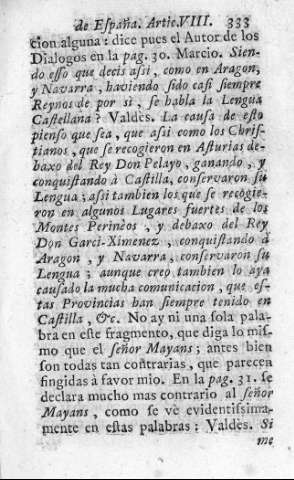 de España. Artic.VIII. 333
cion alguna: dice pues el Autor de los
Dialogos en la pag. 30. Marcio. Sien-
do esso que decis assi, como en Aragon,
y Navarra, haviendo sido casi siempre
Reynos de por si, se habla la Lengua
Castellana? Valdès. La causa de esto
pienso que sea, que assi como los Chris-
tianos, que se recogieron en Asturias de-
baxo del Rey Don Pelayo, ganando, y
conquistando à Castilla, conservaron su
Lengua; assi tambien los que se recogie-
ron en algunos Lugares fuertes de los
Montes Perinèos, y debaxo del Rey
Don Garci-Ximenez, conquistando à
Aragon, y Navarra, conservaron su
Lengua; aunque creo tambien lo aya
causado la mucha comunicacion, que es-
tas Provincias han siempre tenido en
Castilla, &c. No ay ni una sola pala-
bra en este fragmento, que diga lo mis-
mo que el señor Mayans; antes bien
son todas tan contrarias, que parecen
fingidas à favor mio. En la pag. 31. se
declara mucho mas contrario al señor
Mayans, como se vè evidentissima-
mente en estas palabras: Valdès. Si
me